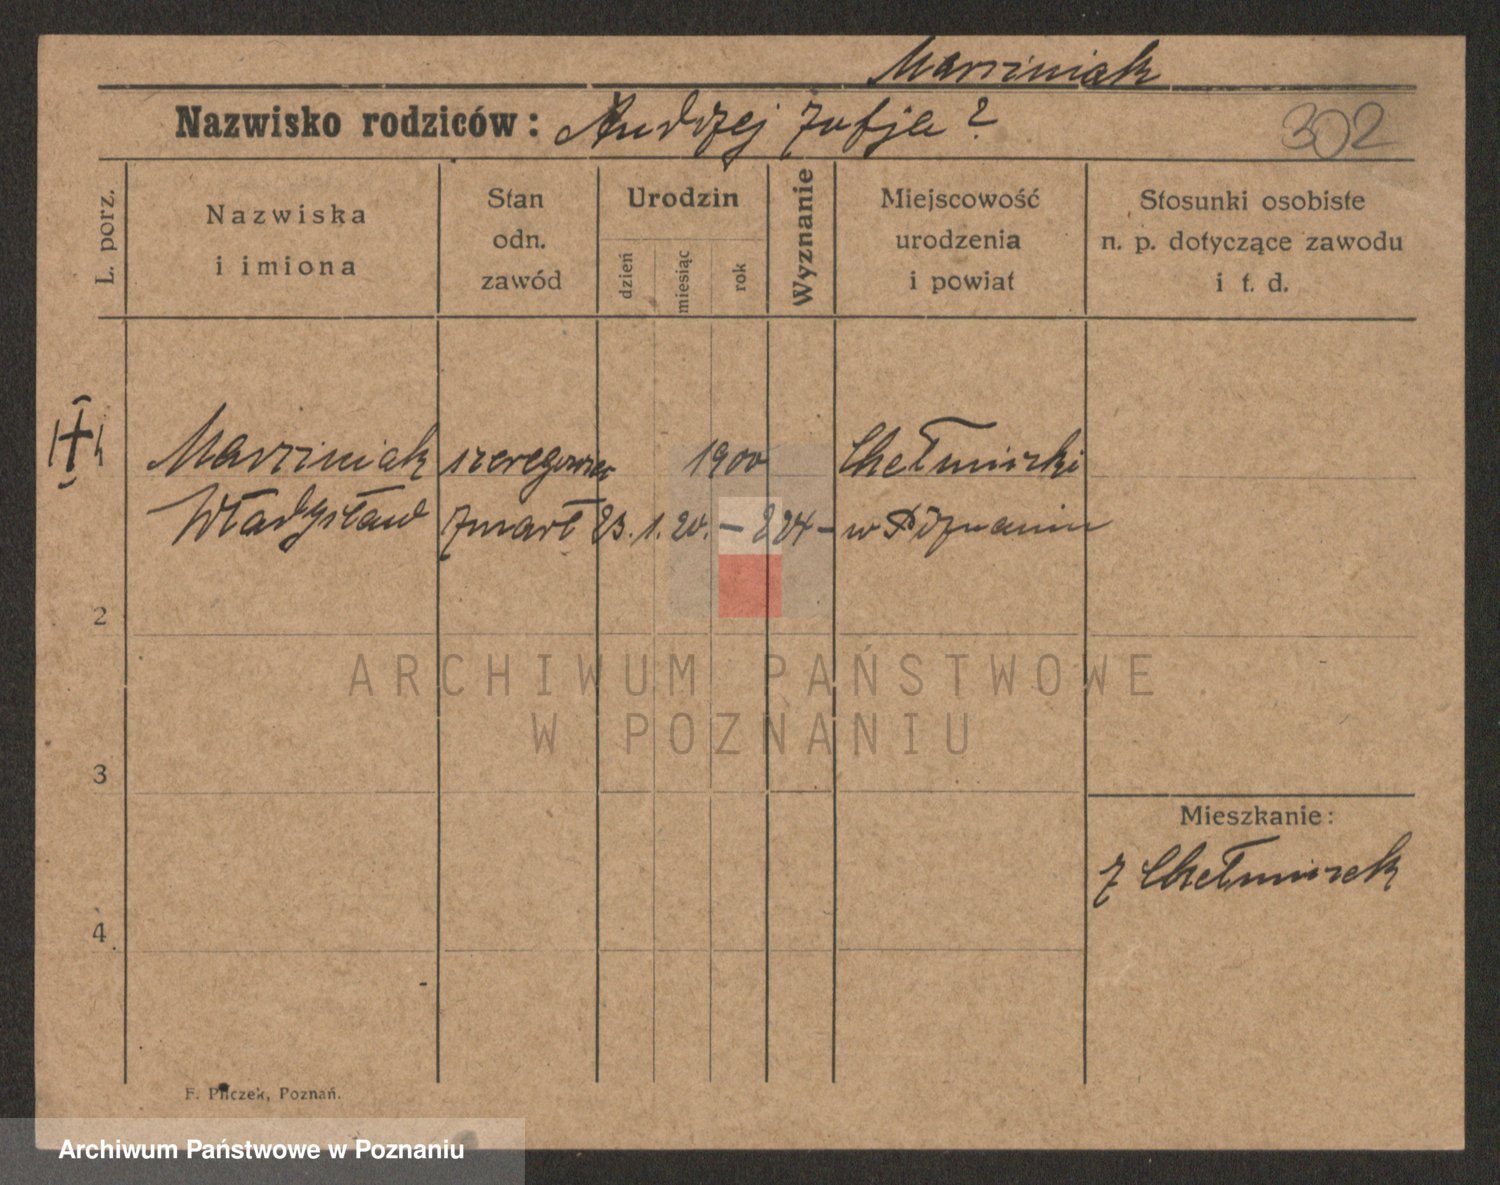 Marciniak
Nazwisko rodziców: Andrzej Zofja ?
302
L. porz.
Nazwiska
i imiona
Stan
odn.
zawód
Urodzin
dzień
miesiąc
rok
Wyznanie
Miejscowość
urodzenia
i powiat
Stosunki osobiste
n. p. dotyczące zawodu
i t. d.
Marciniak szeregowiec 1900
Władysław zmarł 23. 1. 20. – 224 – w Poznaniu
2
ARCHIWUM PAŃSTWOWE
W POZNANIU
3
Mieszkanie:
z
4
F. Pilczek, Poznań.
Archiwum Państwowe w Poznaniu